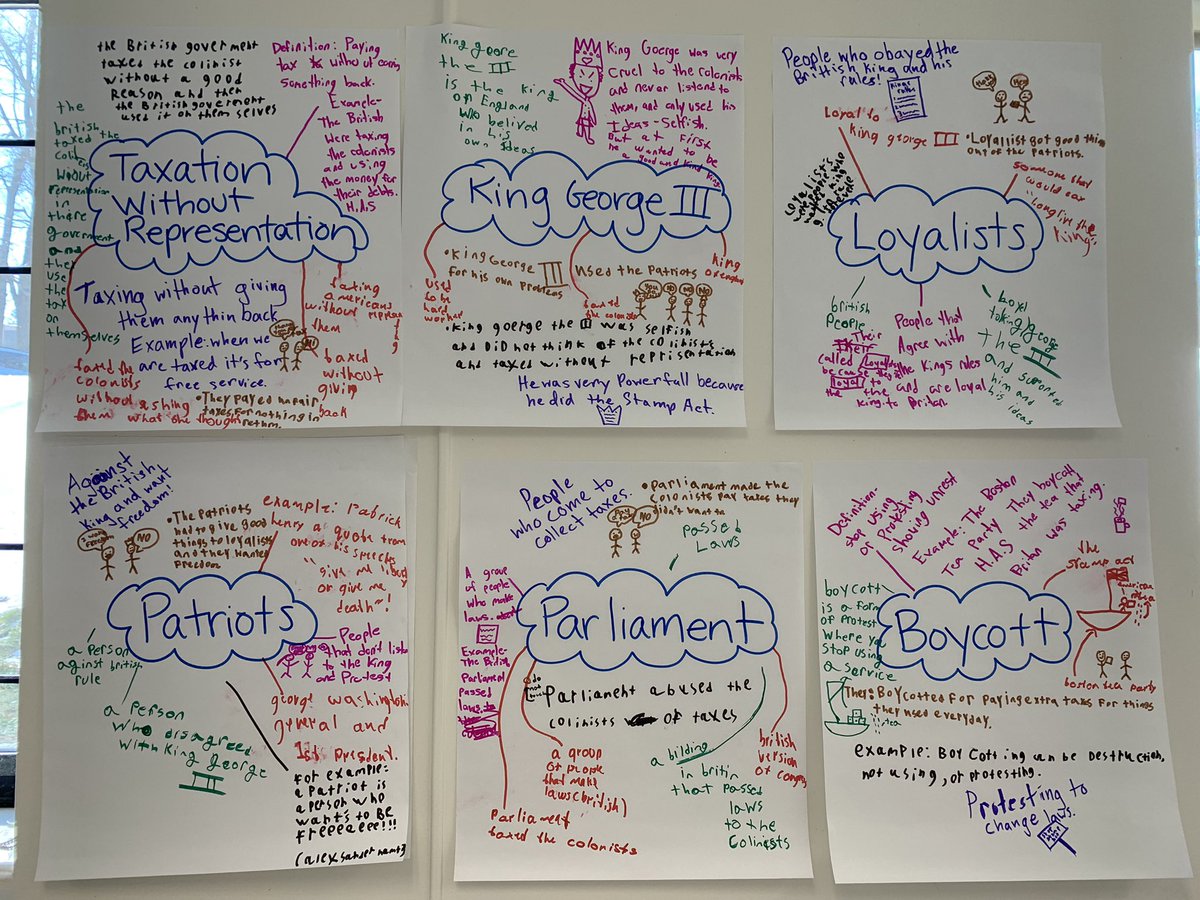 the British goverment
taxed the colinist
without a good
reason and then
the British goverment
used it on them selves
Definition: Paying
tax without
something back.
Example-
The British
were taxing
the colonists
and using
the money for
their debts.
H.A.S
the
british
taxed the
without
representation
in
there
government
and
they
use
the
tax
on
themselves
Taxation
Without
Representation
Taxing without giving
them anythin back
Example: when we
are taxed it's for
free service.
taxed the
colonists
without asking
them what she thought
• They payed unfair
taxes for nothing in
return.
taxing
americans
without
them
taxed
without
giving
back
King goore
the III
is the king
of England
who belived
in his
own ideas
King Goerge was very
cruel to the colonists
and never listend to
them, and only used his
Ideas - Selfish.
But at First
he wanted to be
a good and kind king
King George III
used
to be
hard
worker
• King George III used the Patriots
for his own problems
taxed
the colonists
You
NO
NO
NO
king
of england
• King goerge the III was selfish
and did not think of the colinists
and taxed without reprisentation
He was very Powerfull because
he did the Stamp Act.
People who obayed the
Brittish King and his
rules!
Kings
rules
Loyal to
king george III
Hey
Hey
• Loyallist got good things
out of the Patriots.
someone they
would say
"Long live the
King"
Loyalists
british
People
Their
Their
called Loyalists
because they're
loyal to
the
king
People that
Agree with
the Kings rules
and are loyal
to Britan
loyal
to king george
the III
and supported
him and
his ideas
Against
the British
King and want
freedom!
I want
freedom
NO
• The Patriots
had to give good
things to loyalist
and they wanted
freedom
example: Patrick
henry a quote from
one of his speeches
"give me liberty
or give me
death"!
Patriots
a person
against british
rule
a person
who disagreed
with King george
III
People
that don't listen
to the King
and Protest
george washington
general and
1st President.
for example:
a Patriot is
a person who
wants to be
freeeeee!!!
People
who come to
collect taxes.
• Parliament made the
colonists pay taxes they
didn't want to
Pay
tax
NO
passed
Laws
A group
of people
who make
laws.
Example-
The British
Parliament
passed
laws to
the
Parliament
do
not
Parliament abused the
colinists of taxes
a group
of people
that make
laws (british)
Parliament
taxed the colonists
a bilding
in britin
that passed
laws
to the
Colinists
british
version
of congress
Definition-
stop using
or Protesting
showing unrest
Example: The Boston
Tea Party They boycott
H.A.S the tea that
Britan was taxing.
the
stamp act
american
boycott
is a form
of protest
where you
stop using
a service
Boycott
boston tea party
They Boycotted for paying extra taxes for things
they used everyday.
tea
example: Boycotting can be destruction,
not using, or protesting.
Protesting to
change laws.